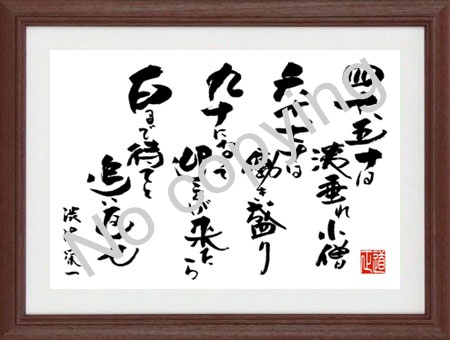 四十五十は
洟垂れ小僧
六十七十は
働き盛り
九十になって
迎えが来たら
百まで待てと
追い返せ
渋沢栄一
No copying